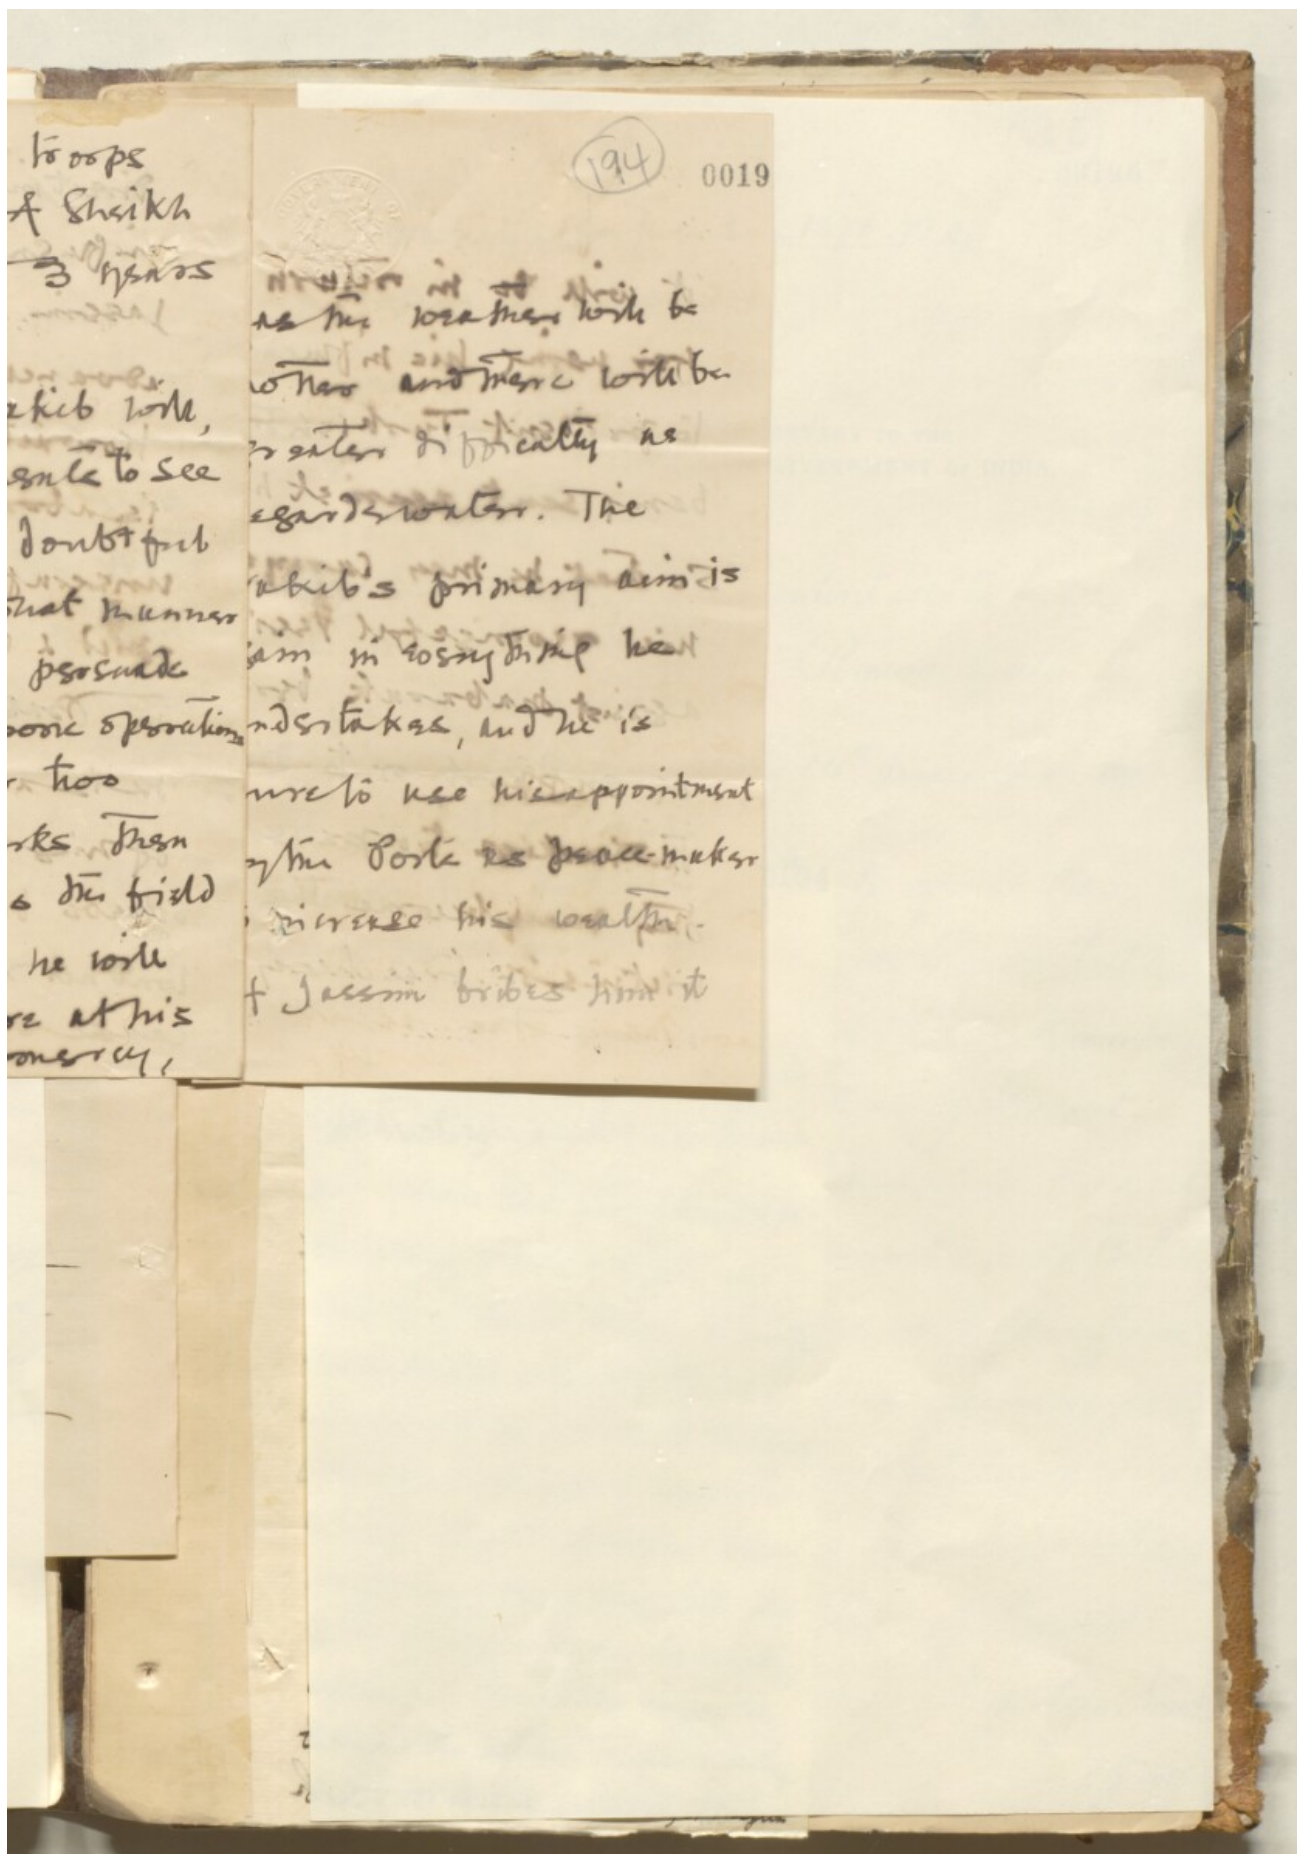 troops
Sheikh
3 years
akib will,
ents to see
doubtful
hat manner
persuade
operations
too
rks then
s the field
he will
re at his
mercy,
194
0019
as the weather will be
otter and there will be
reater difficulty as
egards water. The
akib's primary aim is
ain in everything he
ndertakes, and he is
ure to use his appointment
by the Porte as peace-maker
increase his wealth.
f Jassim bribes him it